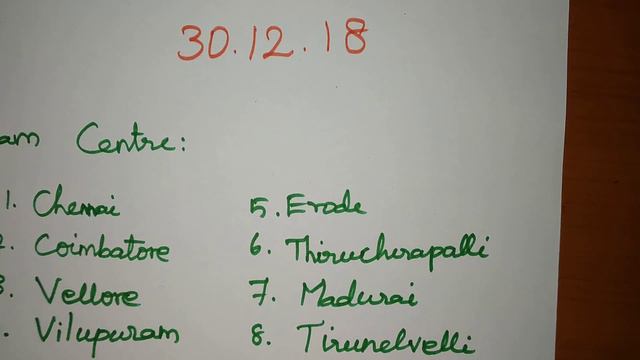 30.12.18
am Centre:
1. Chennai
2. Coimbatore
3. Vellore
. Vilupuram
5. Erode
6. Thiruchirapalli
7. Madurai
8. Tirunelvelli